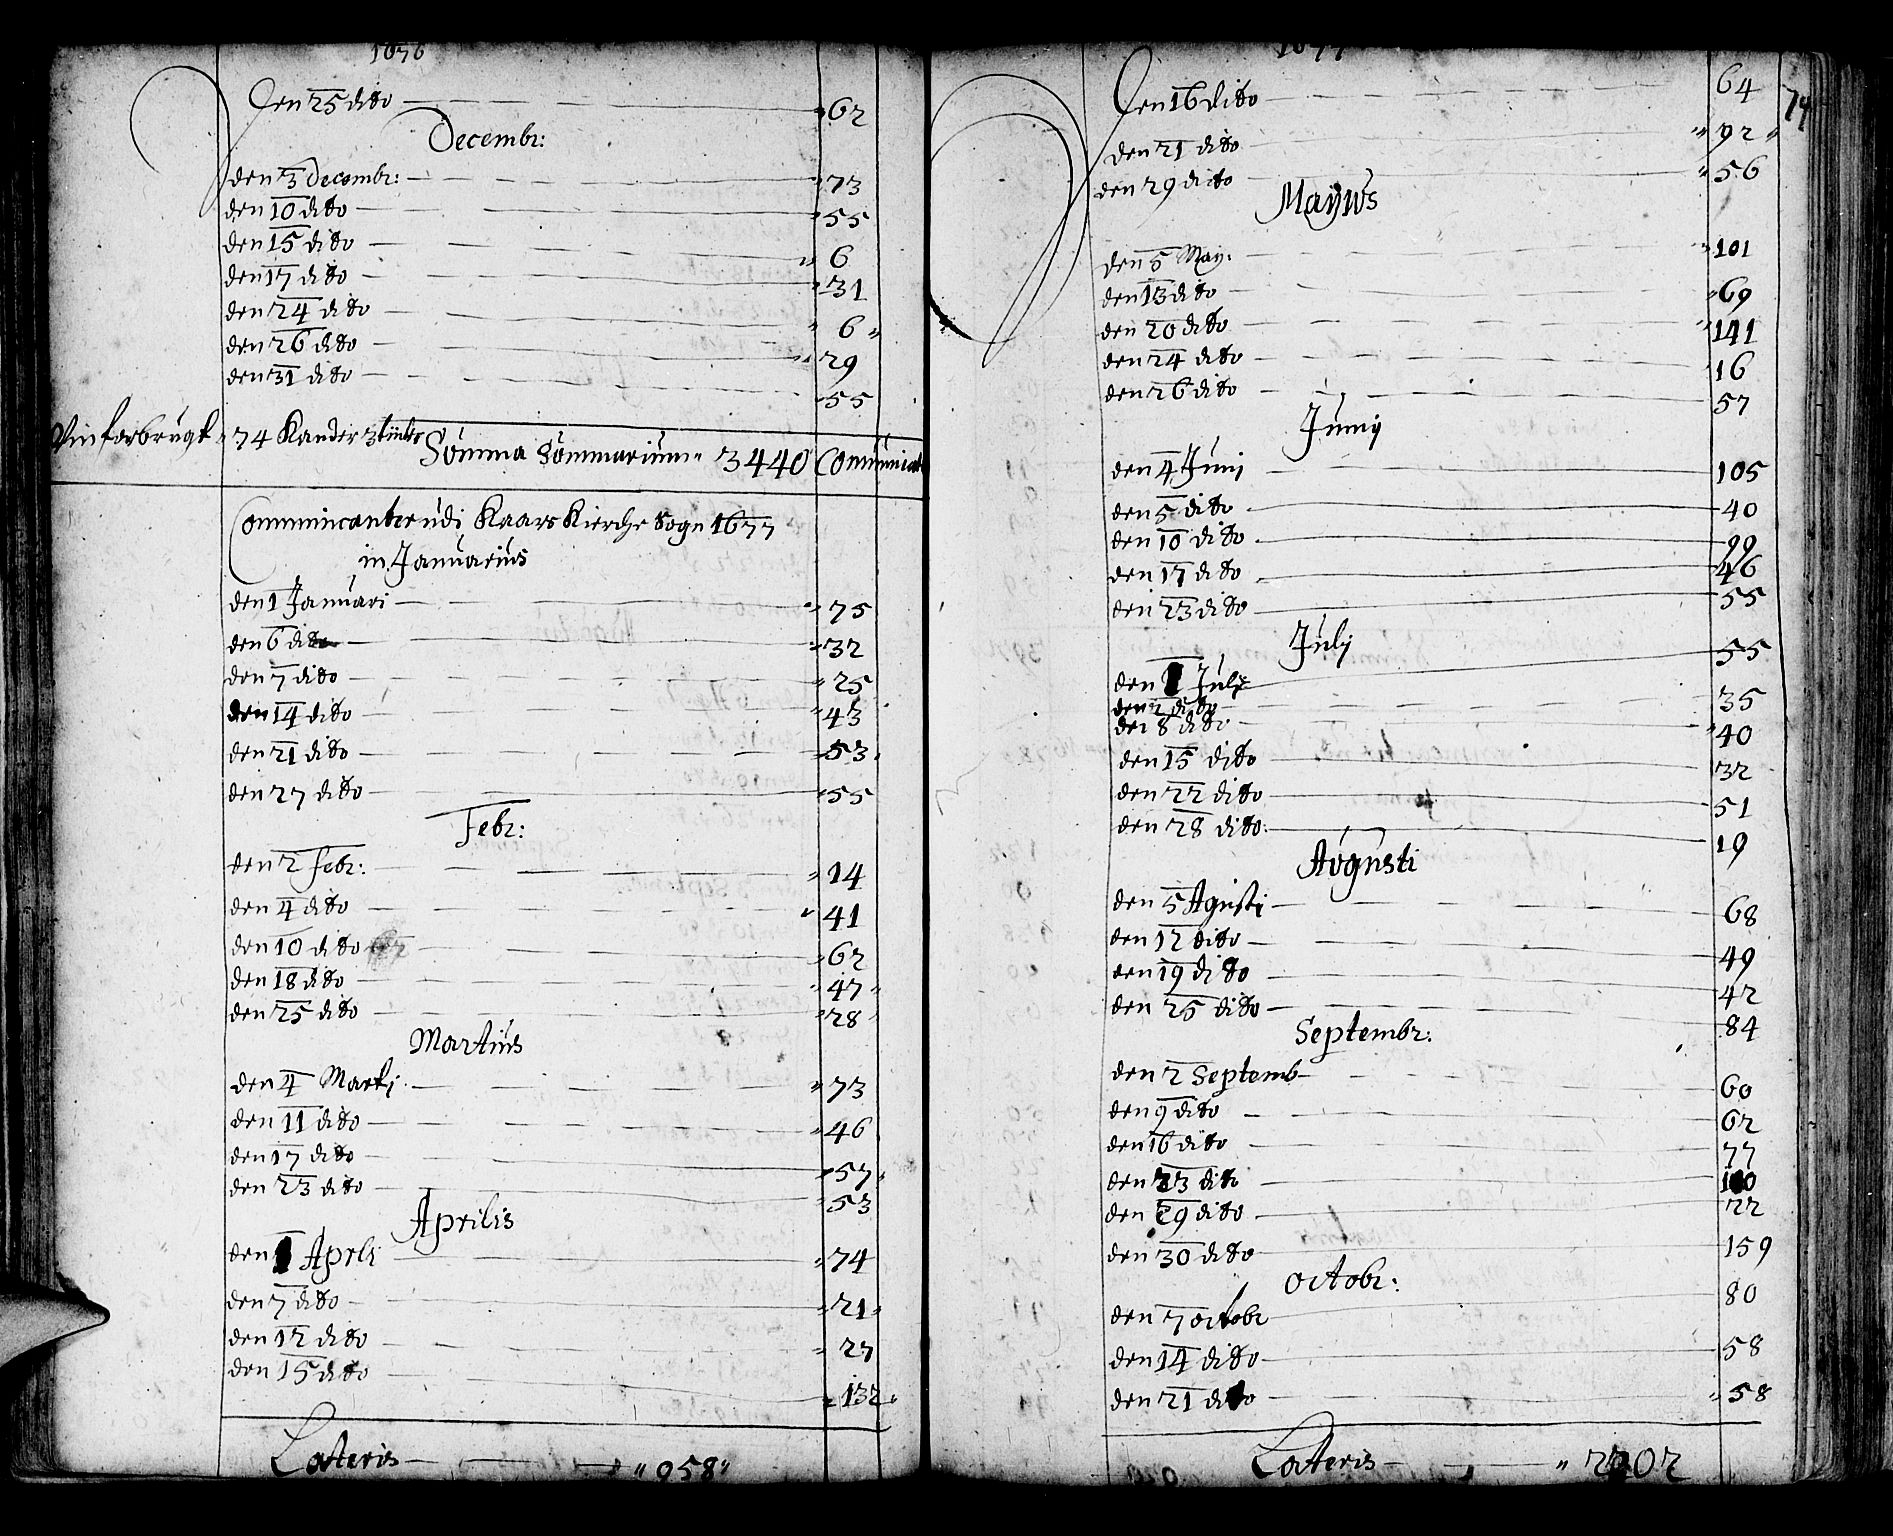 1676
Den 25 dito — 62
Decembr:
den 3 Decembr: — 73
den 10 dito — 55
den 15 dito — 6
den 17 dito — 31
den 24 dito — 6
den 26 dito — 29
den 31 dito — 55
Vin forbrugt 74 Kander 3
Summa Summarium 3440 Communicat
Commnincanter udi Kaars Kierche Sogn 1677
in Januarius
den 1 Januari — 75
den 6 dito — 32
den 7 dito — 25
den 14 dito — 43
den 21 dito — 53
den 27 dito — 55
Febr:
den 2 Febr: — 14
den 4 dito — 41
den 10 dito — 62
den 18 dito — 47
den 25 dito — 28
Martius
den 4 Marti — 73
den 11 dito — 46
den 17 dito — 57
den 23 dito — 53
Aprilis
den 1 Aprli — 74
den 7 dito — 21
den 12 dito — 27
den 15 dito — 132
Lateris — 958
1677
74
Den 16 dito — 64
den 21 dito — 92
den 29 dito — 56
Mayus
den 5 May: — 101
den 13 dito — 69
den 20 dito — 141
den 24 dito — 16
den 26 dito — 57
Junij
den 4 Junj — 105
den 5 dito — 40
den 10 dito — 99
den 17 dito — 46
den 23 dito — 55
Julij
den 1 Julj — 55
den 2 dito — 35
den 8 dito — 40
den 15 dito — 32
den 22 dito — 51
den 28 dito: — 19
Avgusti
den 5 Agusti — 68
den 12 dito — 49
den 19 dito — 42
den 25 dito — 84
Septembr:
den 2 Septemb — 60
den 9 dito — 62
den 16 dito — 77
den 23 dito — 110
den 29 dito — 22
den 30 dito — 159
Octobr:
den 7 octobr — 80
den 14 dito — 58
den 21 dito — 58
Lateris — 2202